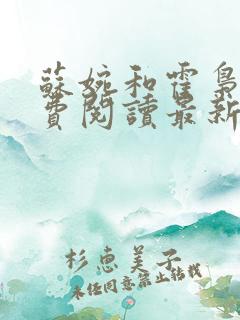 蘇婉和霍梟
費閱讀最新
杉惠美子
未經同意禁止轉載